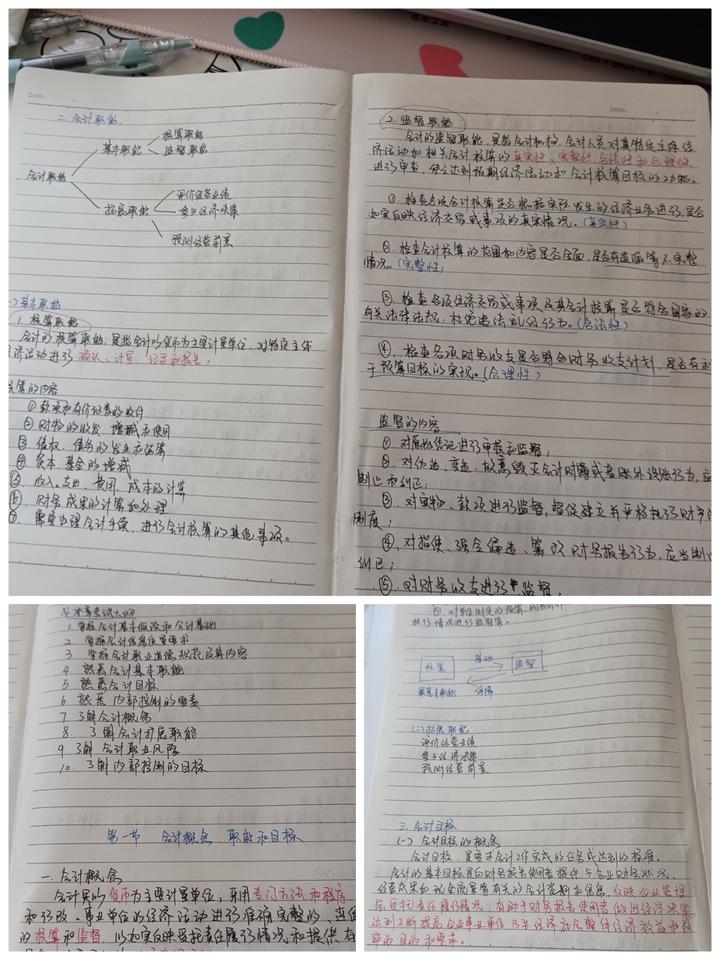 二、会计职能
会计职能
基本职能
核算职能
监督职能
拓展职能
评价经营业绩
参与经济决策
预测经营前景
基本职能
1. 核算职能
会计的核算职能，是指会计以货币为主要计量单位，对特定主体
经济活动进行确认、计量、记录和报告。
核算的内容
①款项和有价证券的收付
②财物的收发、增减和使用
③债权、债务的发生和结算
④资本、基金的增减
收入、支出、费用、成本的计算
财务成果的计算和处理
需要办理会计手续、进行会计核算的其他事项。
2. 监督职能
会计的监督职能，是指会计机构、会计人员对其特定主体经
济活动和相关会计核算的真实性、完整性、合法性和合理性
进行审查，使之达到预期经济活动和会计核算目标的功能。
①检查各项会计核算是否根据实际发生的经济业务进行，是否
如实反映经济交易或事项的真实情况。（真实性）
②检查会计核算的范围和内容是否全面，是否有遗漏等不完整
情况。（完整性）
③检查各项经济交易或事项及其会计核算是否符合国家的
有关法律法规，杜绝违法乱纪行为。（合法性）
④、检查各项财务收支是否符合财务收支计划，是否有利
于预算目标的实现。（合理性）
监督的内容
①对原始凭证进行审核和监督；
②对伪造、变造、故意毁灭会计财簿或账外设账行为，应
制止和纠正；
③对实物、款项进行监督，督促建立并严格执行财产
制度；
④对指使、强令编造、篡改财务报告行为，应当制止
纠正；
⑤对财务收支进行监督，
本章考试大纲
1. 掌握会计基本假设和会计基础
2. 掌握会计信息质量要求
3. 掌握会计职业道德规范及其内容
4. 熟悉会计基本职能
5. 熟悉会计目标
6. 熟悉内部控制的要素
7. 了解会计概念
8. 了解会计扩展职能
9. 了解会计职业风险
10. 了解内部控制的目标
第一节 会计概念、职能和目标
一、会计概念
会计是以货币为主要计量单位，采用专门方法和程序
和行政、事业单位的经济活动进行准确完整的、连续
的核算和监督，以如实反映受托责任履行情况和提供有
执行情况进行监督等。
核算
基础
监督
最基本职能
保障
(二)拓展职能
评价经营业绩
参与经济决策
预测经营前景
三、会计目标
(一)会计目标的概念
会计目标，是要求会计工作完成的任务或达到的标准。
会计的基本目标是向财务报告使用者提供与企业财务状况、
经营成果和现金流量等有关的会计资料和信息，反映企业管理
层受托责任履行情况，有助于财务报告使用者做出经济决策
达到不断提高企业事业单位乃至经济社会整体经济效益和效
率的目的和要求。